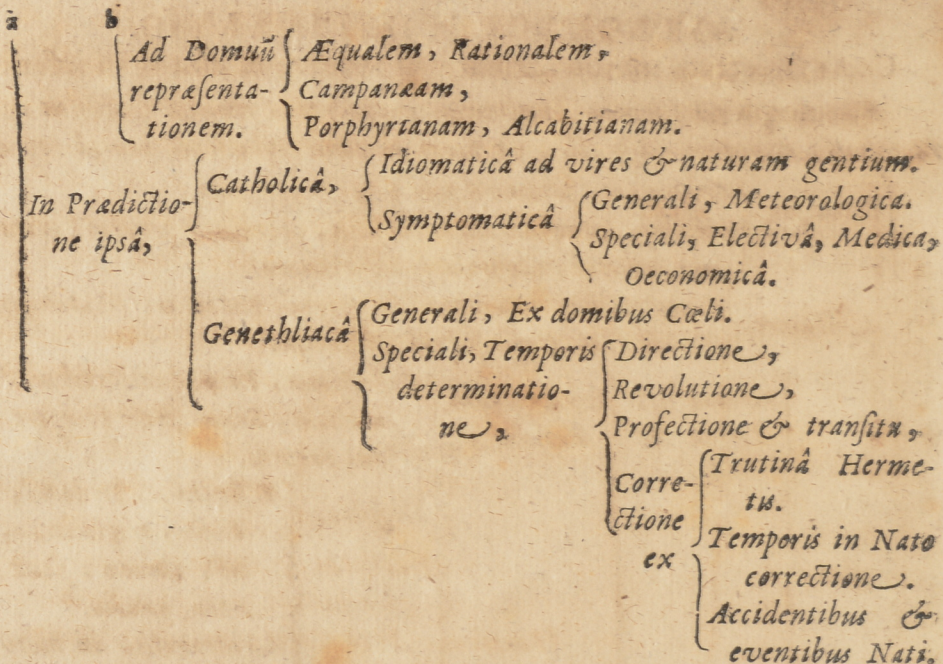 a b
Ad Domuũ
repræſenta-
tionem.
Æqualem, Rationalem,
Campanæam,
Porphyrianam, Alcabitianam.
In Prædictio-
ne ipsâ,
Catholicâ,
Idiomaticâ ad vires & naturam gentium.
Symptomaticâ
Generali, Meteorologica.
Speciali, Electivâ, Medica,
Oeconomicâ.
Genethliacâ
Generali, Ex domibus Cœli.
Speciali, Temporis
determinatio-
ne,
Directione,
Revolutione,
Profectione & tranſitu,
Corre-
ctione
ex
Trutinâ Herme-
tis.
Temporis in Nato
correctione.
Accidentibus &
eventibus Nati.